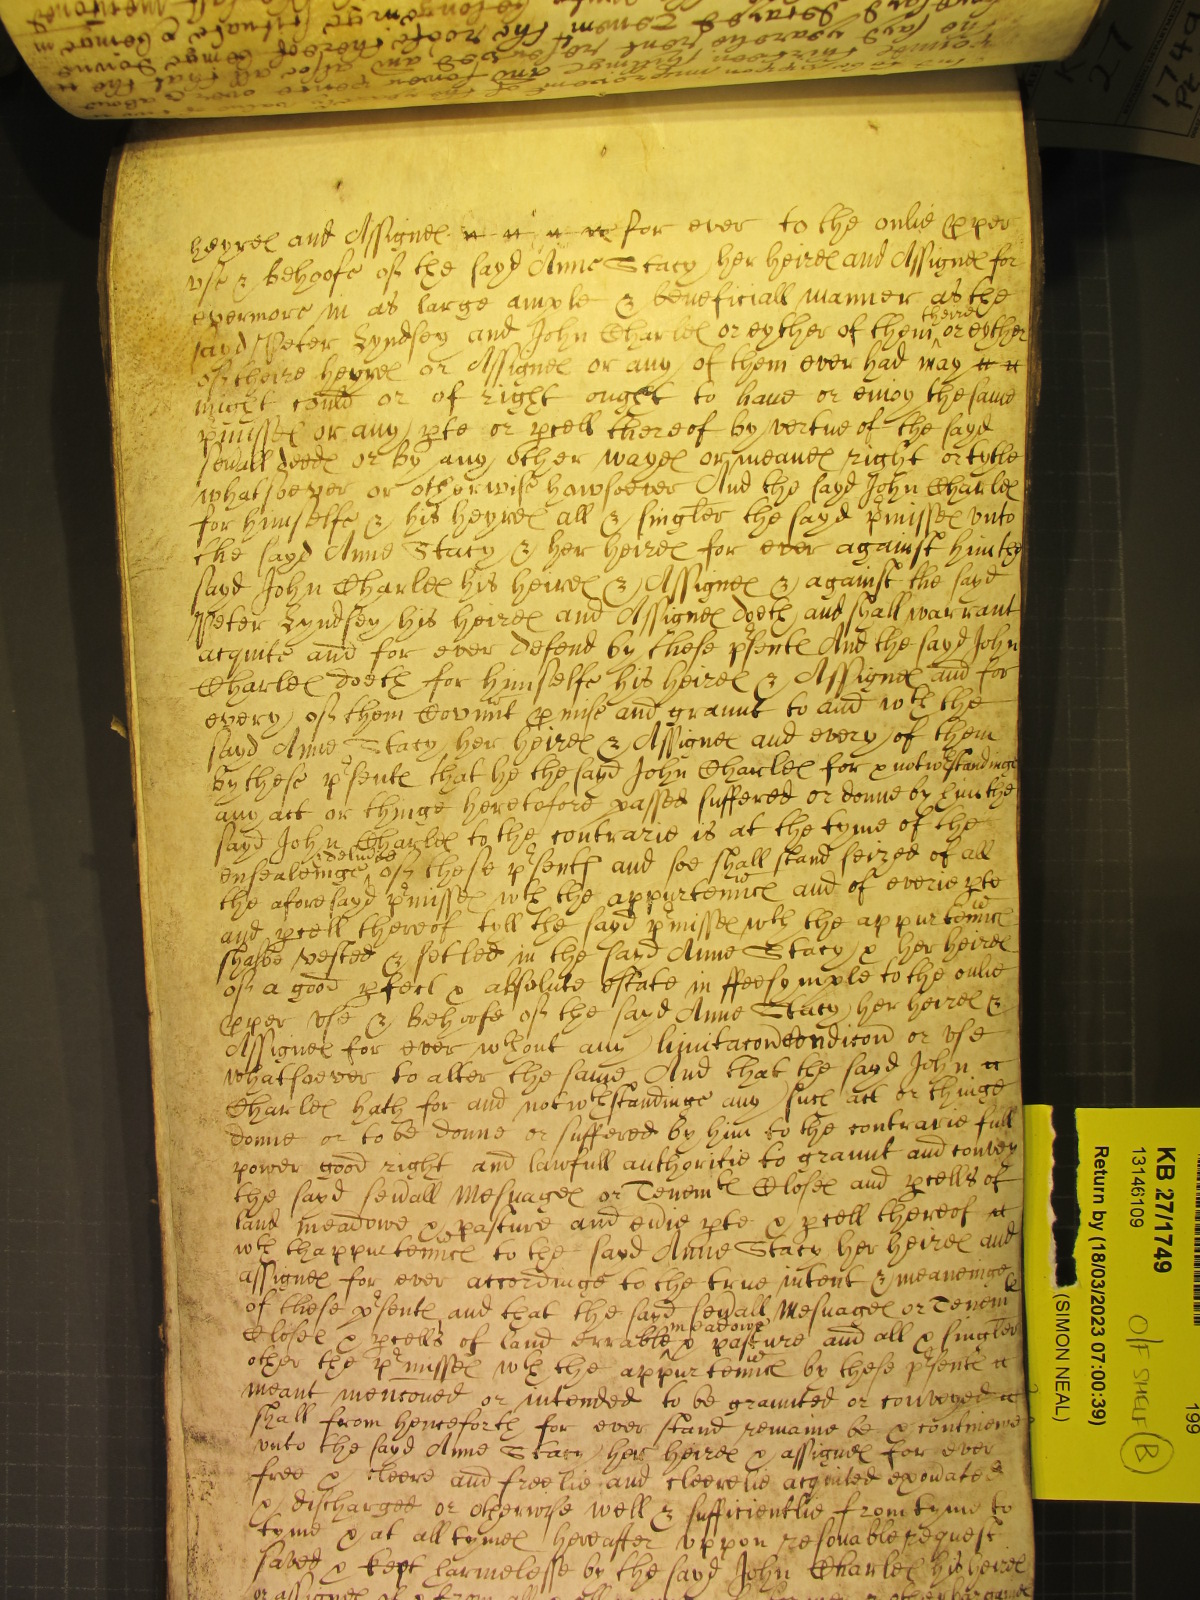 heyres and Assignes for ever to the onlie pper
use & Behoofe of the sayd Anne Stacy her heires and Assignes for
evermore in as large ample & beneficiall manner as the
sayd Peter Lyndsey and John Charles or eyther of them theires or eyther
of theire heyres or Assignes or any of them ever had may
might could or of right ought to have or enioy the same
pmisses or any pte or pcell thereof by vertue of the sayd
sevall deeds or by any other wayes or meanes right or tytle
whatsoever or otherwise howsoever And the sayd John Charles
for himselfe & his heyres all & singler the sayd pmisses unto
the sayd Anne Stacy & her heires for ever against him the
sayd John Charles his heires & Assignes & against the sayd
Peter Lyndsey his heires and Assignes doeth and shall warrant
acquite and for ever defend by these psents And the sayd John
Charles doeth for himselfe his heires & Assignes and for
every of them Covnnt pmise and graunt to and wth the
sayd Anne Stacy her heires & Assignes and every of them
by these psents that he the sayd John Charles for & notwthstandinge
any act or thinge heretofore passed suffered or donne by him the
sayd John Charles to the contrarie is at the tyme of the
ensealeinge of these psents and soe shall stand seized of all
the aforesayd pmisses wth the appurtennces and of everie pte
and pcell thereof till the sayd pmisses wth the appurtennces
shalbe vested & setled in the sayd Anne Stacy & her heires
of a good pfect & absolute estate in ffeesymple to the onlie
pper use & Behoofe of the sayd Anne Stacy her heires &
Assignes for ever wthout any limitacon condicon or use
whatsoever to alter the same And that the sayd John
Charles hath for and notwthstandinge any such act or thinge
donne or to be donne or suffered by him to the contrarie full
power good right and lawfull authoritie to graunt and convey
the sayd sevall Mesuages or Tenemts Closes and pcells of
land meadowe & pasture and evie pte & pcell thereof
wth thappurtennces to the sayd Anne Stacy her heires and
assignes for ever accordinge to the true intent & meaneinge
of these psents and that the sayd sevall Mesuages or Tenemts
Closes & pcells of land Errable meadowe & pasture and all & singler
other the pmisses wth the appurtennces by these psents
meant menconed or intended to be graunted or conveyed
shall from henceforth for ever stand remaine be & contineue
unto the sayd Anne Stacy her heires & assignes for ever
free & cleere and freelie and cleerelie acquited exonated
& discharged or otherwise well & sufficientlie from tyme to
tyme & at all tymes hereafter uppon resonable request
saved & kept harmelesse by the sayd John Charles his heires
or assignes of & from all
KB 27/1749
13146109
Return by (18/03/2023 07:00:39)
(SIMON NEAL)
O/F SHELF
B
199
27
1749